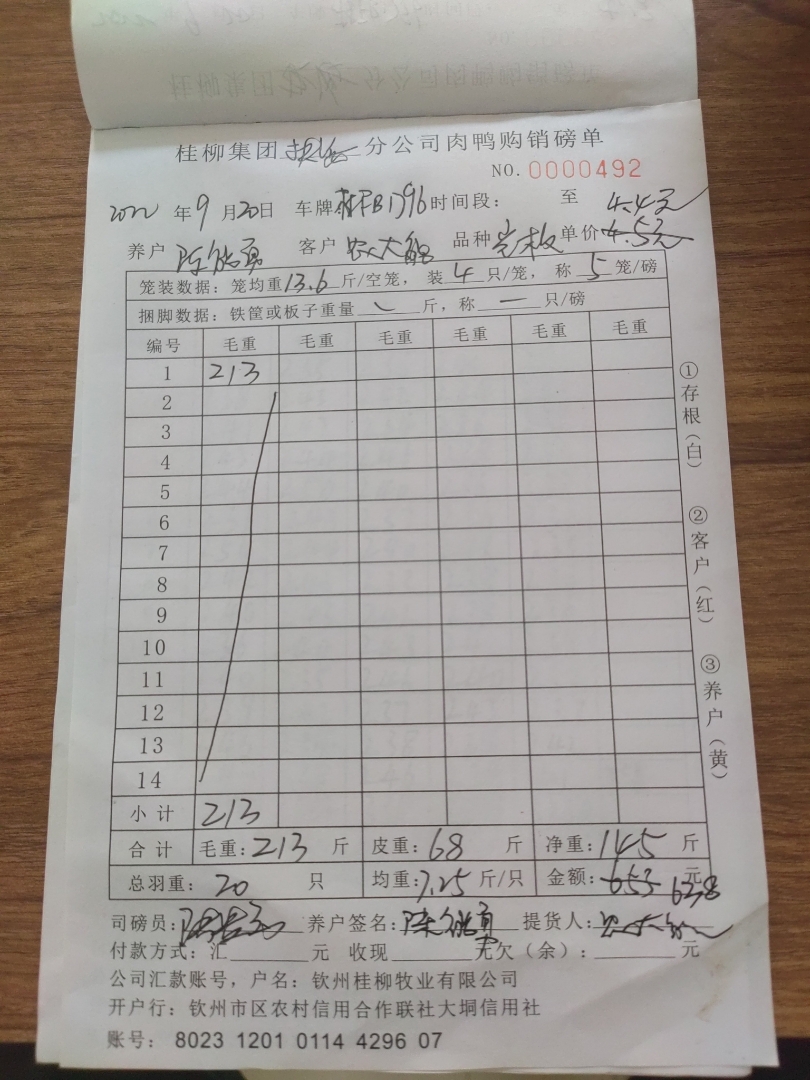 桂柳集团 分公司肉鸭购销磅单
NO. 0000492
2022 年 9 月 20 日 车牌 1796 时间段: 至 4.4元
养户 陈能勇 客户 农大能 品种 岩板 单价 4.5元
笼装数据: 笼均重 13.6 斤/空笼, 装 4 只/笼, 称 5 笼/磅
捆脚数据: 铁筐或板子重量 斤, 称 一 只/磅
编号 毛重 毛重 毛重 毛重 毛重 毛重
1 213
2
3
4
5
6
7
8
9
10
11
12
13
14
小计 213
合计 毛重: 213 斤 皮重: 68 斤 净重: 145 斤
总羽重: 20 只 均重: 7.25 斤/只 金额: 653 638 元
司磅员: 养户签名: 陈能勇 提货人:
付款方式: 汇 元 收现 元欠(余): 元
公司汇款账号, 户名: 钦州桂柳牧业有限公司
开户行: 钦州市区农村信用合作联社大垌信用社
账号: 8023 1201 0114 4296 07
①存根(白)
②客户(红)
③养户(黄)